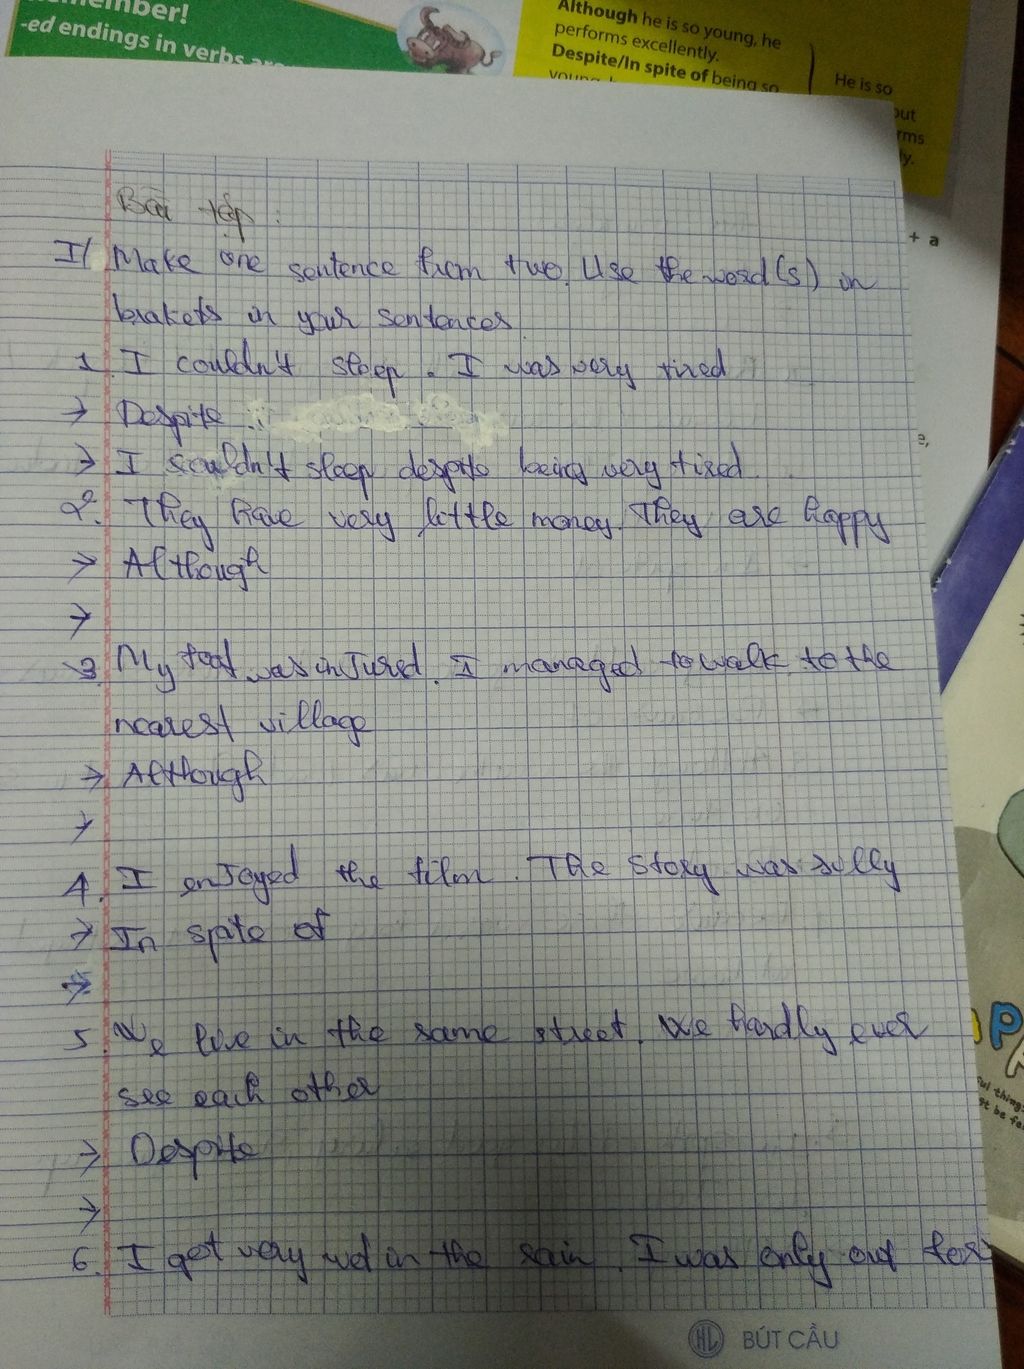 ember!
-ed endings in verbs are
Although he is so young, he
performs excellently.
Despite/In spite of being so
He is so
out
rms
ly.
+ a
e,
Bài tập:
I/ Make one sentence from two. Use the word(s) in
brakets in your sentences
1. I couldn't sleep. I was very tired
→ Despite :
→ I couldn't sleep despite being very tired
2. They have very little money. They are happy
→ Although
→
3. My foot was injured. I managed to walk to the
nearest village
→ Although
→
4. I enjoyed the film. The story was silly
→ In spite of
→
5. We live in the same street. We hardly ever
see each other
→ Despite
→
6. I got very wet in the rain. I was only out for
P
ful thing
st be fa
HL BÚT CẦU